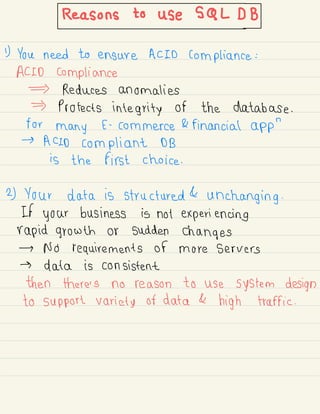 Reasons to use SQL DB
1) You need to ensure ACID Compliance:
ACID Compliance
⟹ Reduces anomalies
⟹ Protects integrity of the database.
for many E-commerce & financial appⁿ
→ ACID Compliant DB
is the first choice.
2) Your data is structured & unchanging.
If your business is not experiencing
rapid growth or sudden changes
→ No requirements of more servers
→ data is consistent
then there's no reason to use system design
to support variety of data & high traffic.